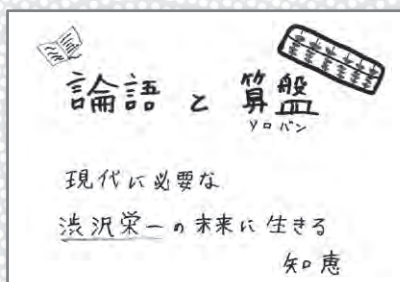 論語と算盤
ソロバン
現代に必要な
渋沢栄一の未来に生きる
知恵